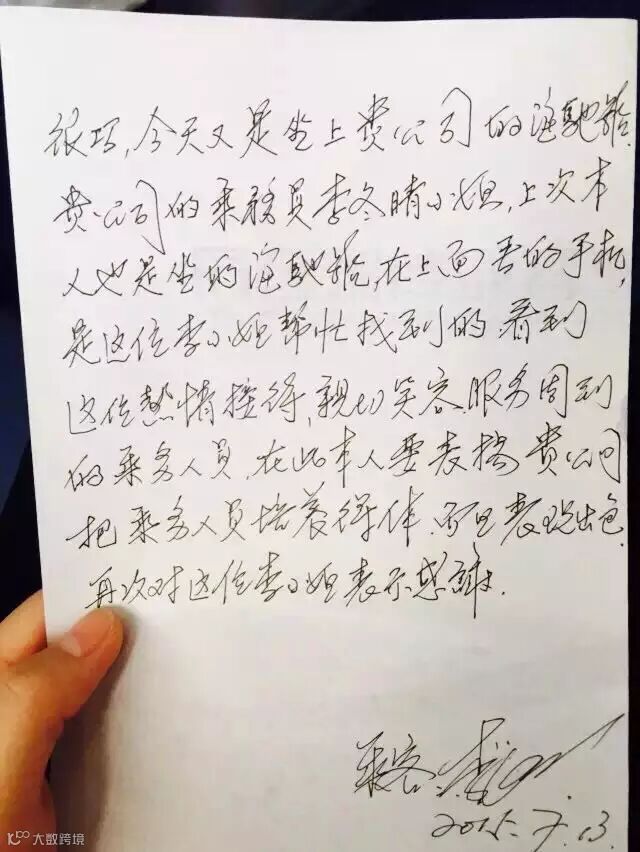 很巧,今天又是坐上贵公司的海驰轮.
贵公司的乘務员李冬晴小姐,上次本
人也是坐的海驰轮,在上面丢的手机,
是这位李小姐帮忙找到的.看到
这位熱情接待,親切笑容.服务周到
的乘务人员,在此本人要表揚贵公司
把乘务人员培养得体.而且表现出色.
再次对这位李小姐表示感謝.
乘客:李
2015.7.13
大数跨境